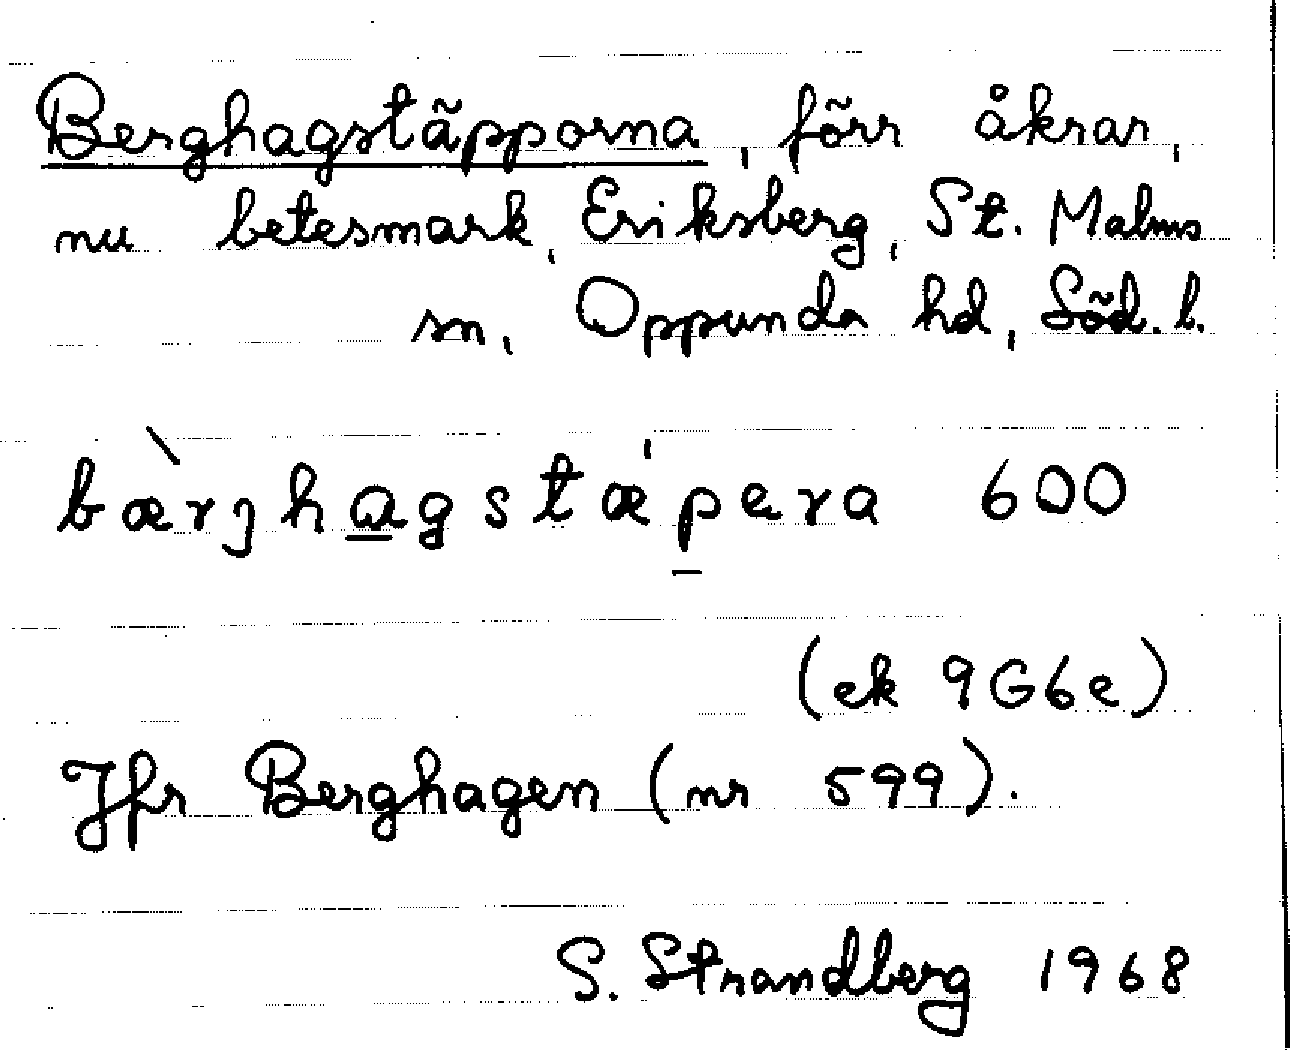 Berghagstäpporna, förr åkrar,
nu betesmark, Eriksberg, St. Malms
sn, Oppunda hd, Söd. l.
bæ̀rȷhagstæ'pera 600
(ek 9G6e)
Jfr Berghagen (nr 599).
S. Strandberg 1968